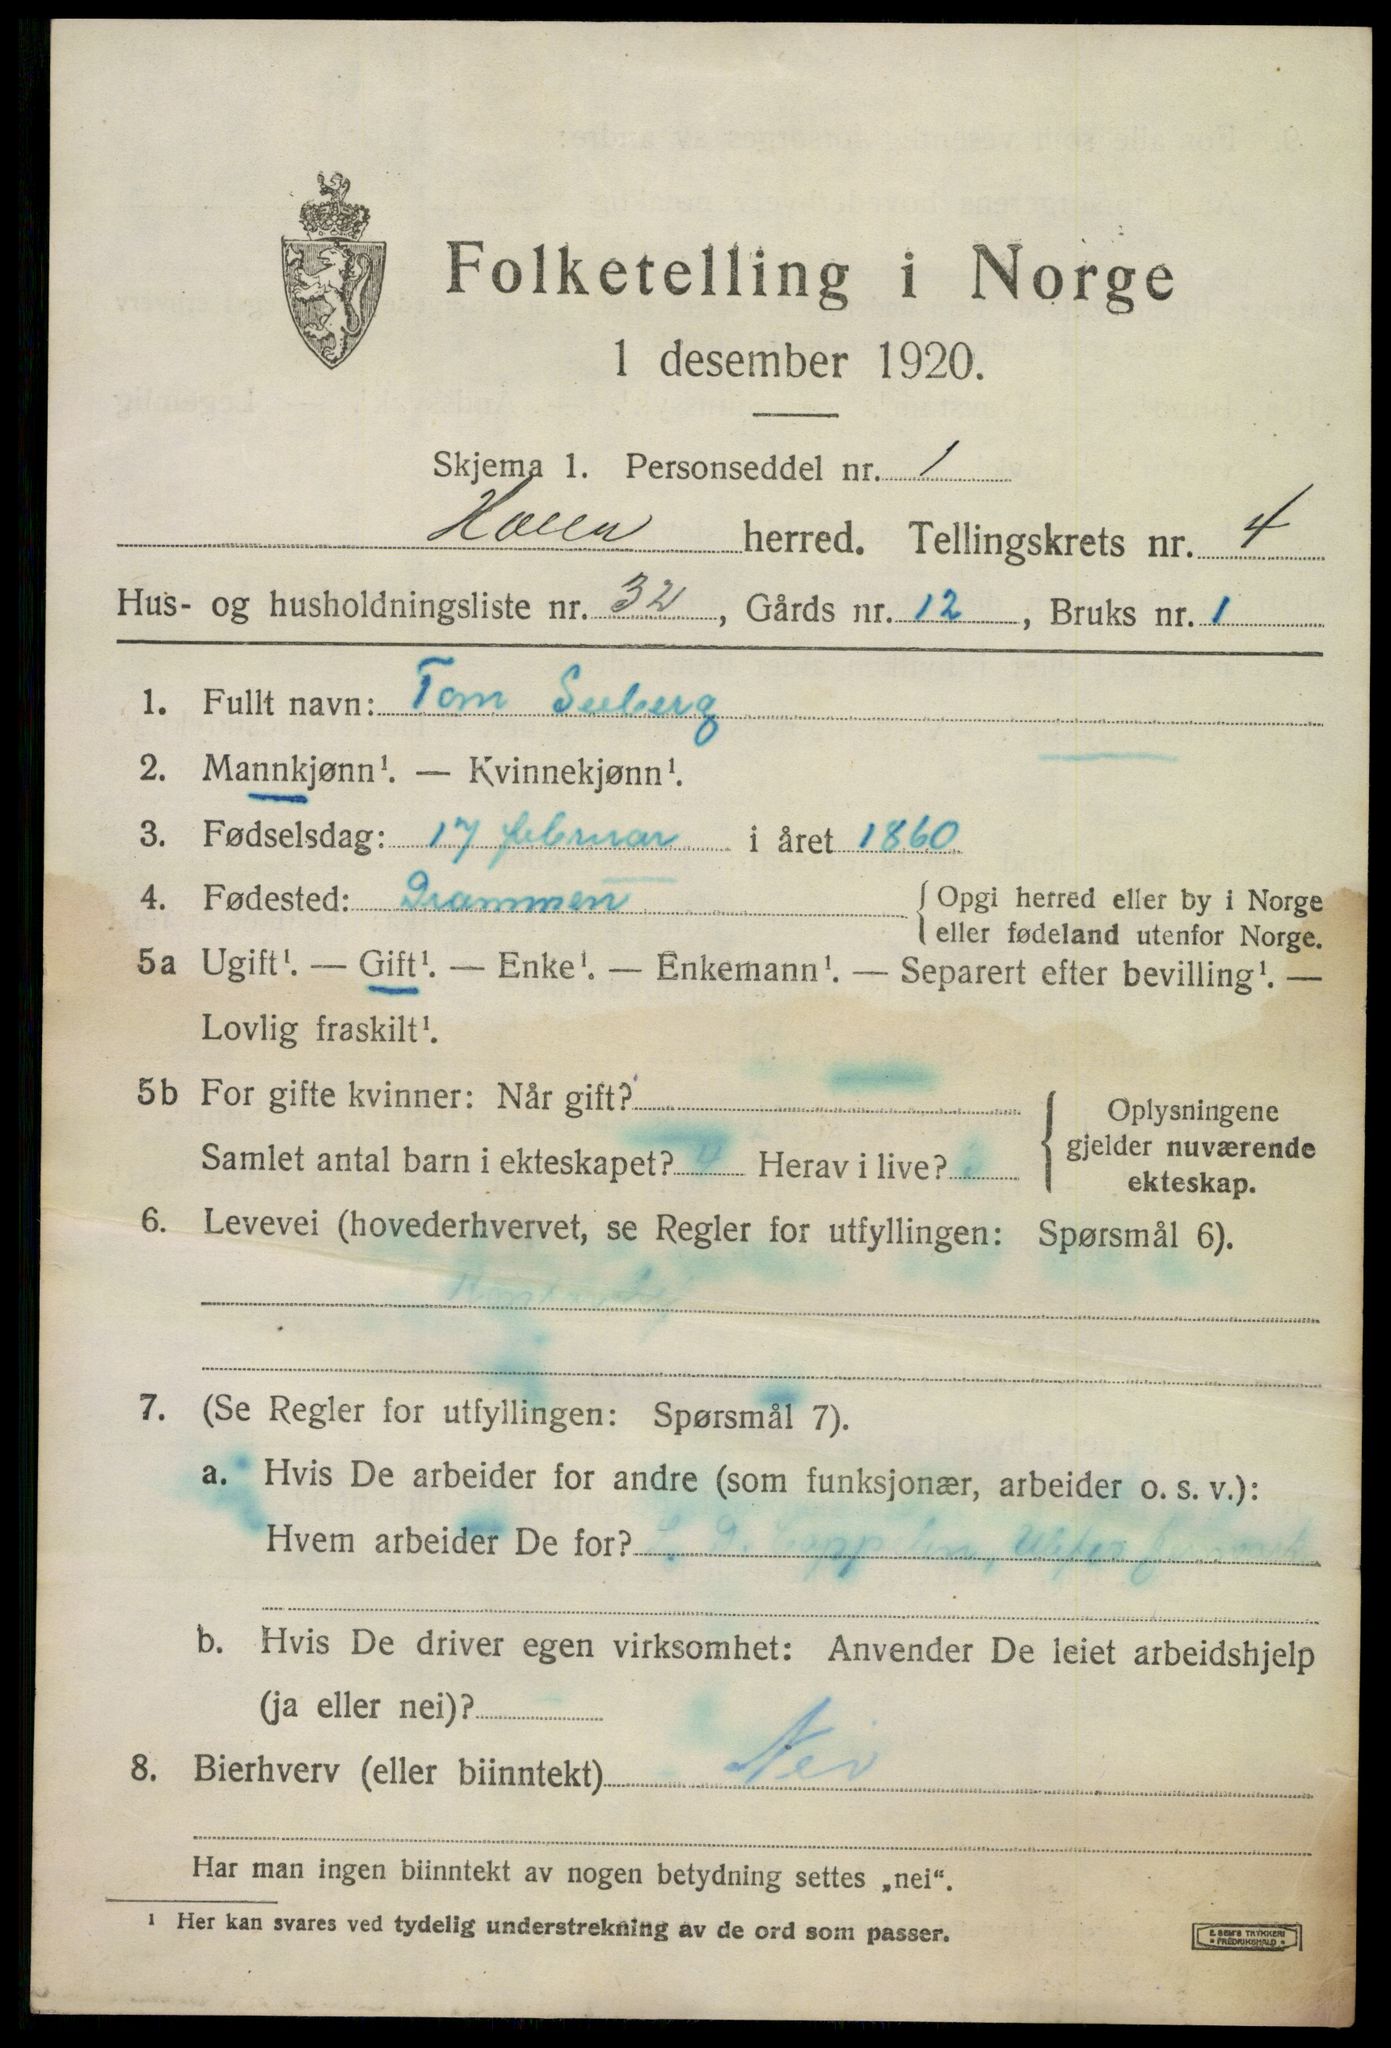 Folketelling i Norge
1 desember 1920.
Skjema 1. Personseddel nr. 1
Holla herred. Tellingskrets nr. 4
Hus- og husholdningsliste nr. 32, Gårds nr. 12, Bruks nr. 1
1. Fullt navn: Tom Seeberg
2. Mannkjønn¹. — Kvinnekjønn¹.
3. Fødselsdag: 17 februar i året 1860
4. Fødested: Drammen { Opgi herred eller by i Norge
eller fødeland utenfor Norge.
5a Ugift¹. — Gift¹. — Enke¹. — Enkemann¹. — Separert efter bevilling¹. —
Lovlig fraskilt¹.
5b For gifte kvinner: Når gift?
Samlet antal barn i ekteskapet? 4 Herav i live?
{ Oplysningene
gjelder nuværende
ekteskap.
6. Levevei (hovederhvervet, se Regler for utfyllingen: Spørsmål 6).
7. (Se Regler for utfyllingen: Spørsmål 7).
a. Hvis De arbeider for andre (som funksjonær, arbeider o. s. v.):
Hvem arbeider De for? D. Cappelen, Ulefos
b. Hvis De driver egen virksomhet: Anvender De leiet arbeidshjelp
(ja eller nei)?
8. Bierhverv (eller biinntekt) Nei
Har man ingen biinntekt av nogen betydning settes „nei“.
¹ Her kan svares ved tydelig understrekning av de ord som passer.
E. SEM'S TRYKKERI
* FREDRIKSHALD *